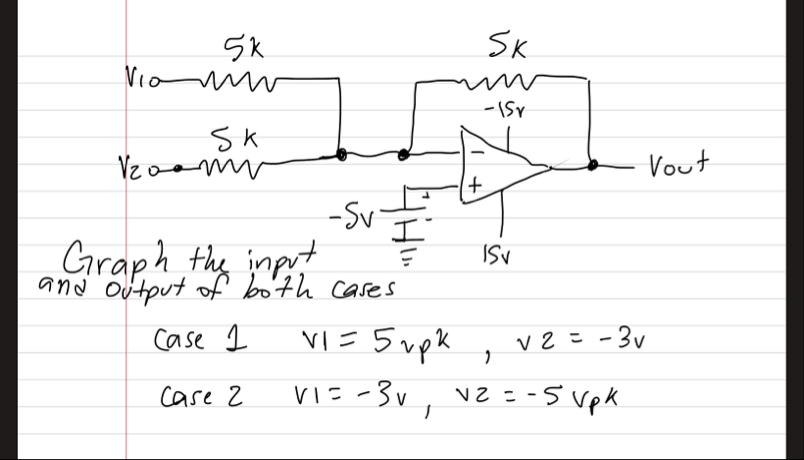 5k
5k
V1
-15v
5k
V2
-
Vout
+
+
-5v
-
15v
Graph the input
and output of both cases
Case 1 V1 = 5 vpk , v2 = -3v
Case 2 V1 = -3v , v2 = -5 Vpk